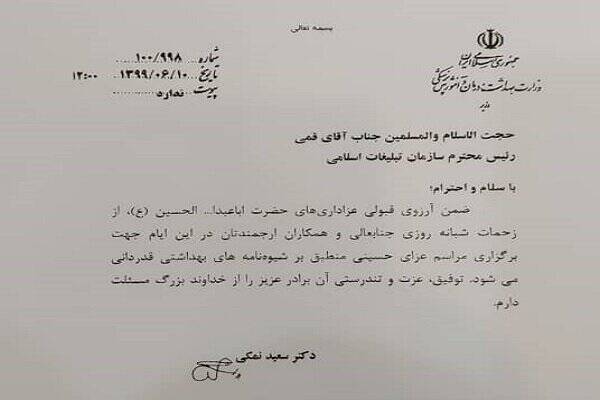 بسمه تعالی
جمهوری اسلامی ایران
وزارت بهداشت، درمان و آموزش پزشکی
وزیر
شماره ۱۰۰/۹۹۸
تاریخ ۱۳۹۹/۰۶/۱۰ ۱۲:۰۰
پیوست ندارد
حجت الاسلام والمسلمین جناب آقای قمی
رئیس محترم سازمان تبلیغات اسلامی
با سلام و احترام؛
ضمن آرزوی قبولی عزاداری‌های حضرت اباعبدا... الحسین (ع)، از
زحمات شبانه روزی جنابعالی و همکاران ارجمندتان در این ایام جهت
برگزاری مراسم عزای حسینی منطبق بر شیوه‌نامه های بهداشتی قدردانی
می شود. توفیق، عزت و تندرستی آن برادر عزیز را از خداوند بزرگ مسئلت
دارم.
دکتر سعید نمکی